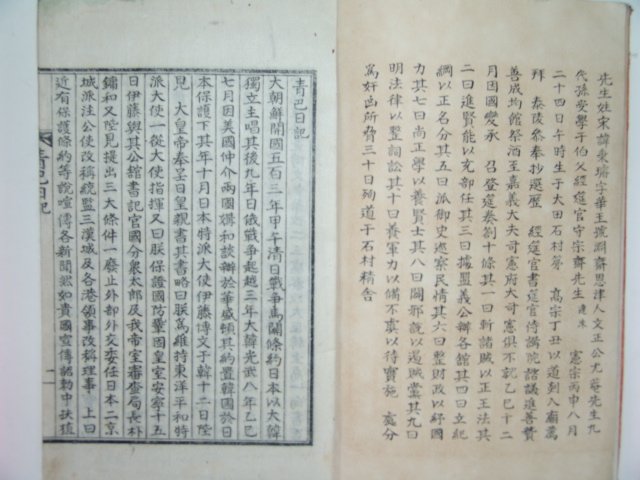 先生姓宋諱秉璿字華玉號淵齋恩津人文正公尤菴先生九
代孫受學于伯父經筵官守宗齋先生達洙 憲宗丙申八月
二十四日午時生于大田石村第 高宗丁丑以道到入廟薦
拜 泰陵參奉抄選歷 經筵官書筵官侍講院諮議進善贊
善成均館祭酒至嘉義大夫司憲府大司憲俱不就乙巳十二
月因國變承 召登筵奏劄十條其一曰斬諸賊以正王法其
二曰進賢能以充部任其三曰據盟義公辦各館其四曰立紀
綱以正名分其五曰派御史巡察民情其六曰整財政以紓國
力其七曰尚正學以養賢士其八曰闢邪說以遏賊黨其九曰
明法律以整詞訟其十曰養軍力以備不虞以待實施 處分
爲奸凶所脅三十日殉道于石村精舍
青巴日記
大朝鮮開國五百三年甲午清日戰爭馬關條約日本以大韓
獨立主唱其後九年日俄戰爭起越三年大韓光武八年乙巳
七月因美國仲介兩國媾和談辦於華盛頓其約置韓國於日
本保護下其年十月日本特派大使伊藤博文于韓十二日陛
見 大皇帝奉呈日皇親書其書略曰朕爲維持東洋平和特
派大使一從大使指揮又曰朕保證國防鞏固皇室安寧十五
日伊藤與其公館書記官國分象太郎及我帝室審查局長朴
鏞和又陛見提出三大條件一廢止外部外交委任日本二京
城派注公使改稱統監三漢城及各港領事改稱理事 上曰
近有保護條約等說喧傳各新聞恐如貴國宣傳詔勅中扶植
青巴日記
一